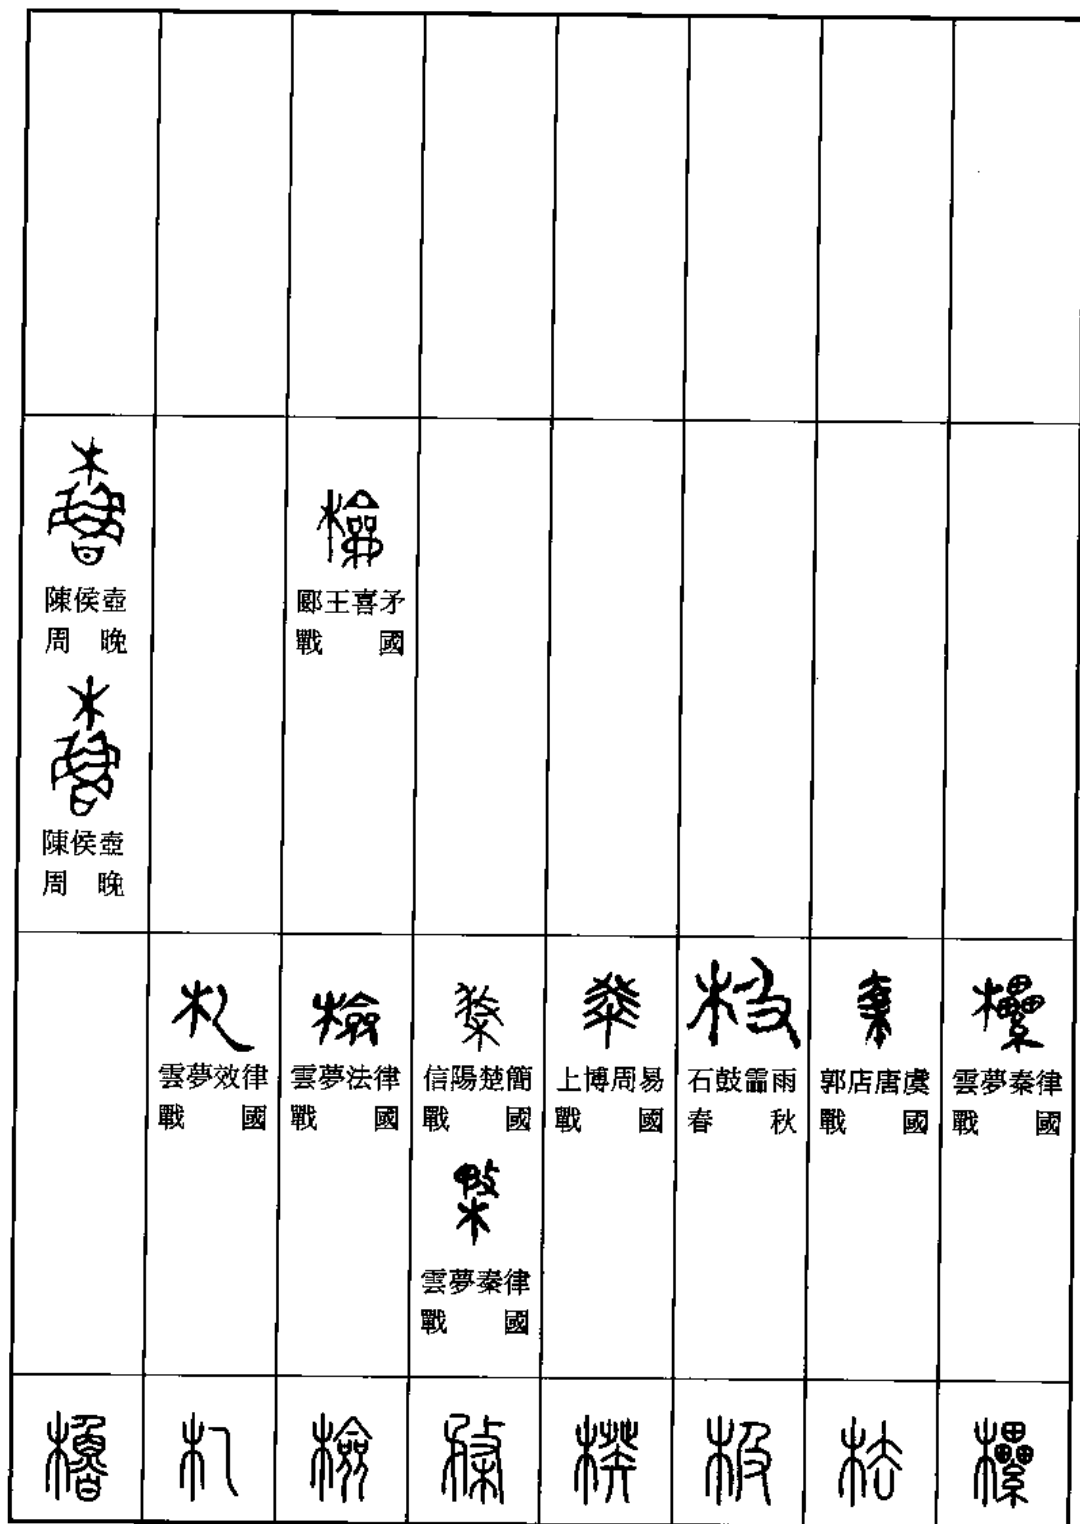 櫓
陳侯壺
周晚
櫓
陳侯壺
周晚
檢
郾王喜矛
戰國
札
雲夢效律
戰國
檢
雲夢法律
戰國
信陽楚簡
戰國
雲夢秦律
戰國
上博周易
戰國
极
石鼓霝雨
春秋
郭店唐虞
戰國
欙
雲夢秦律
戰國
櫓 札 檢 棨 极 欙